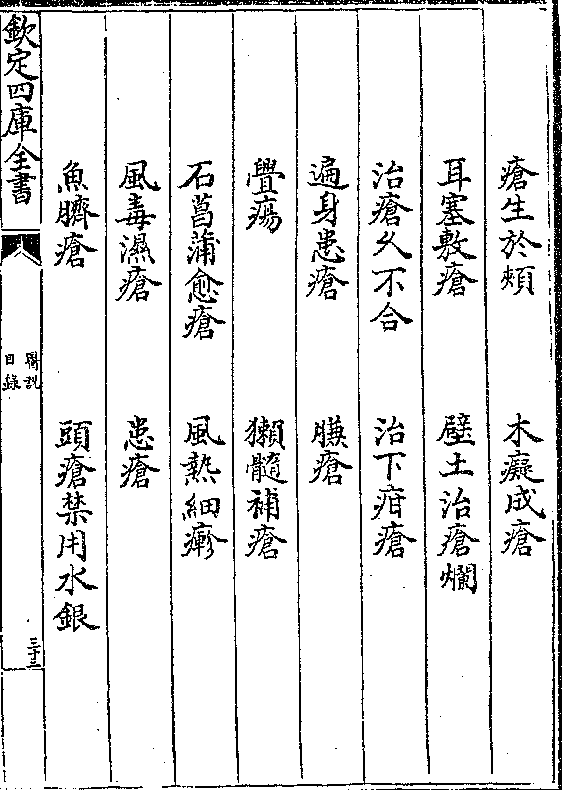 瘡生於頰　木癡成瘡
耳塞敷瘡　壁土治瘡爛
治瘡久不合　治下疳瘡
遍身患瘡　臁瘡
疊瘍　獺髓補瘡
石菖蒲愈瘡　風熱細瘮
風毒濕瘡　患瘡
魚臍瘡　頭瘡禁用水銀
欽定四庫全書　醫説　目錄　三十三